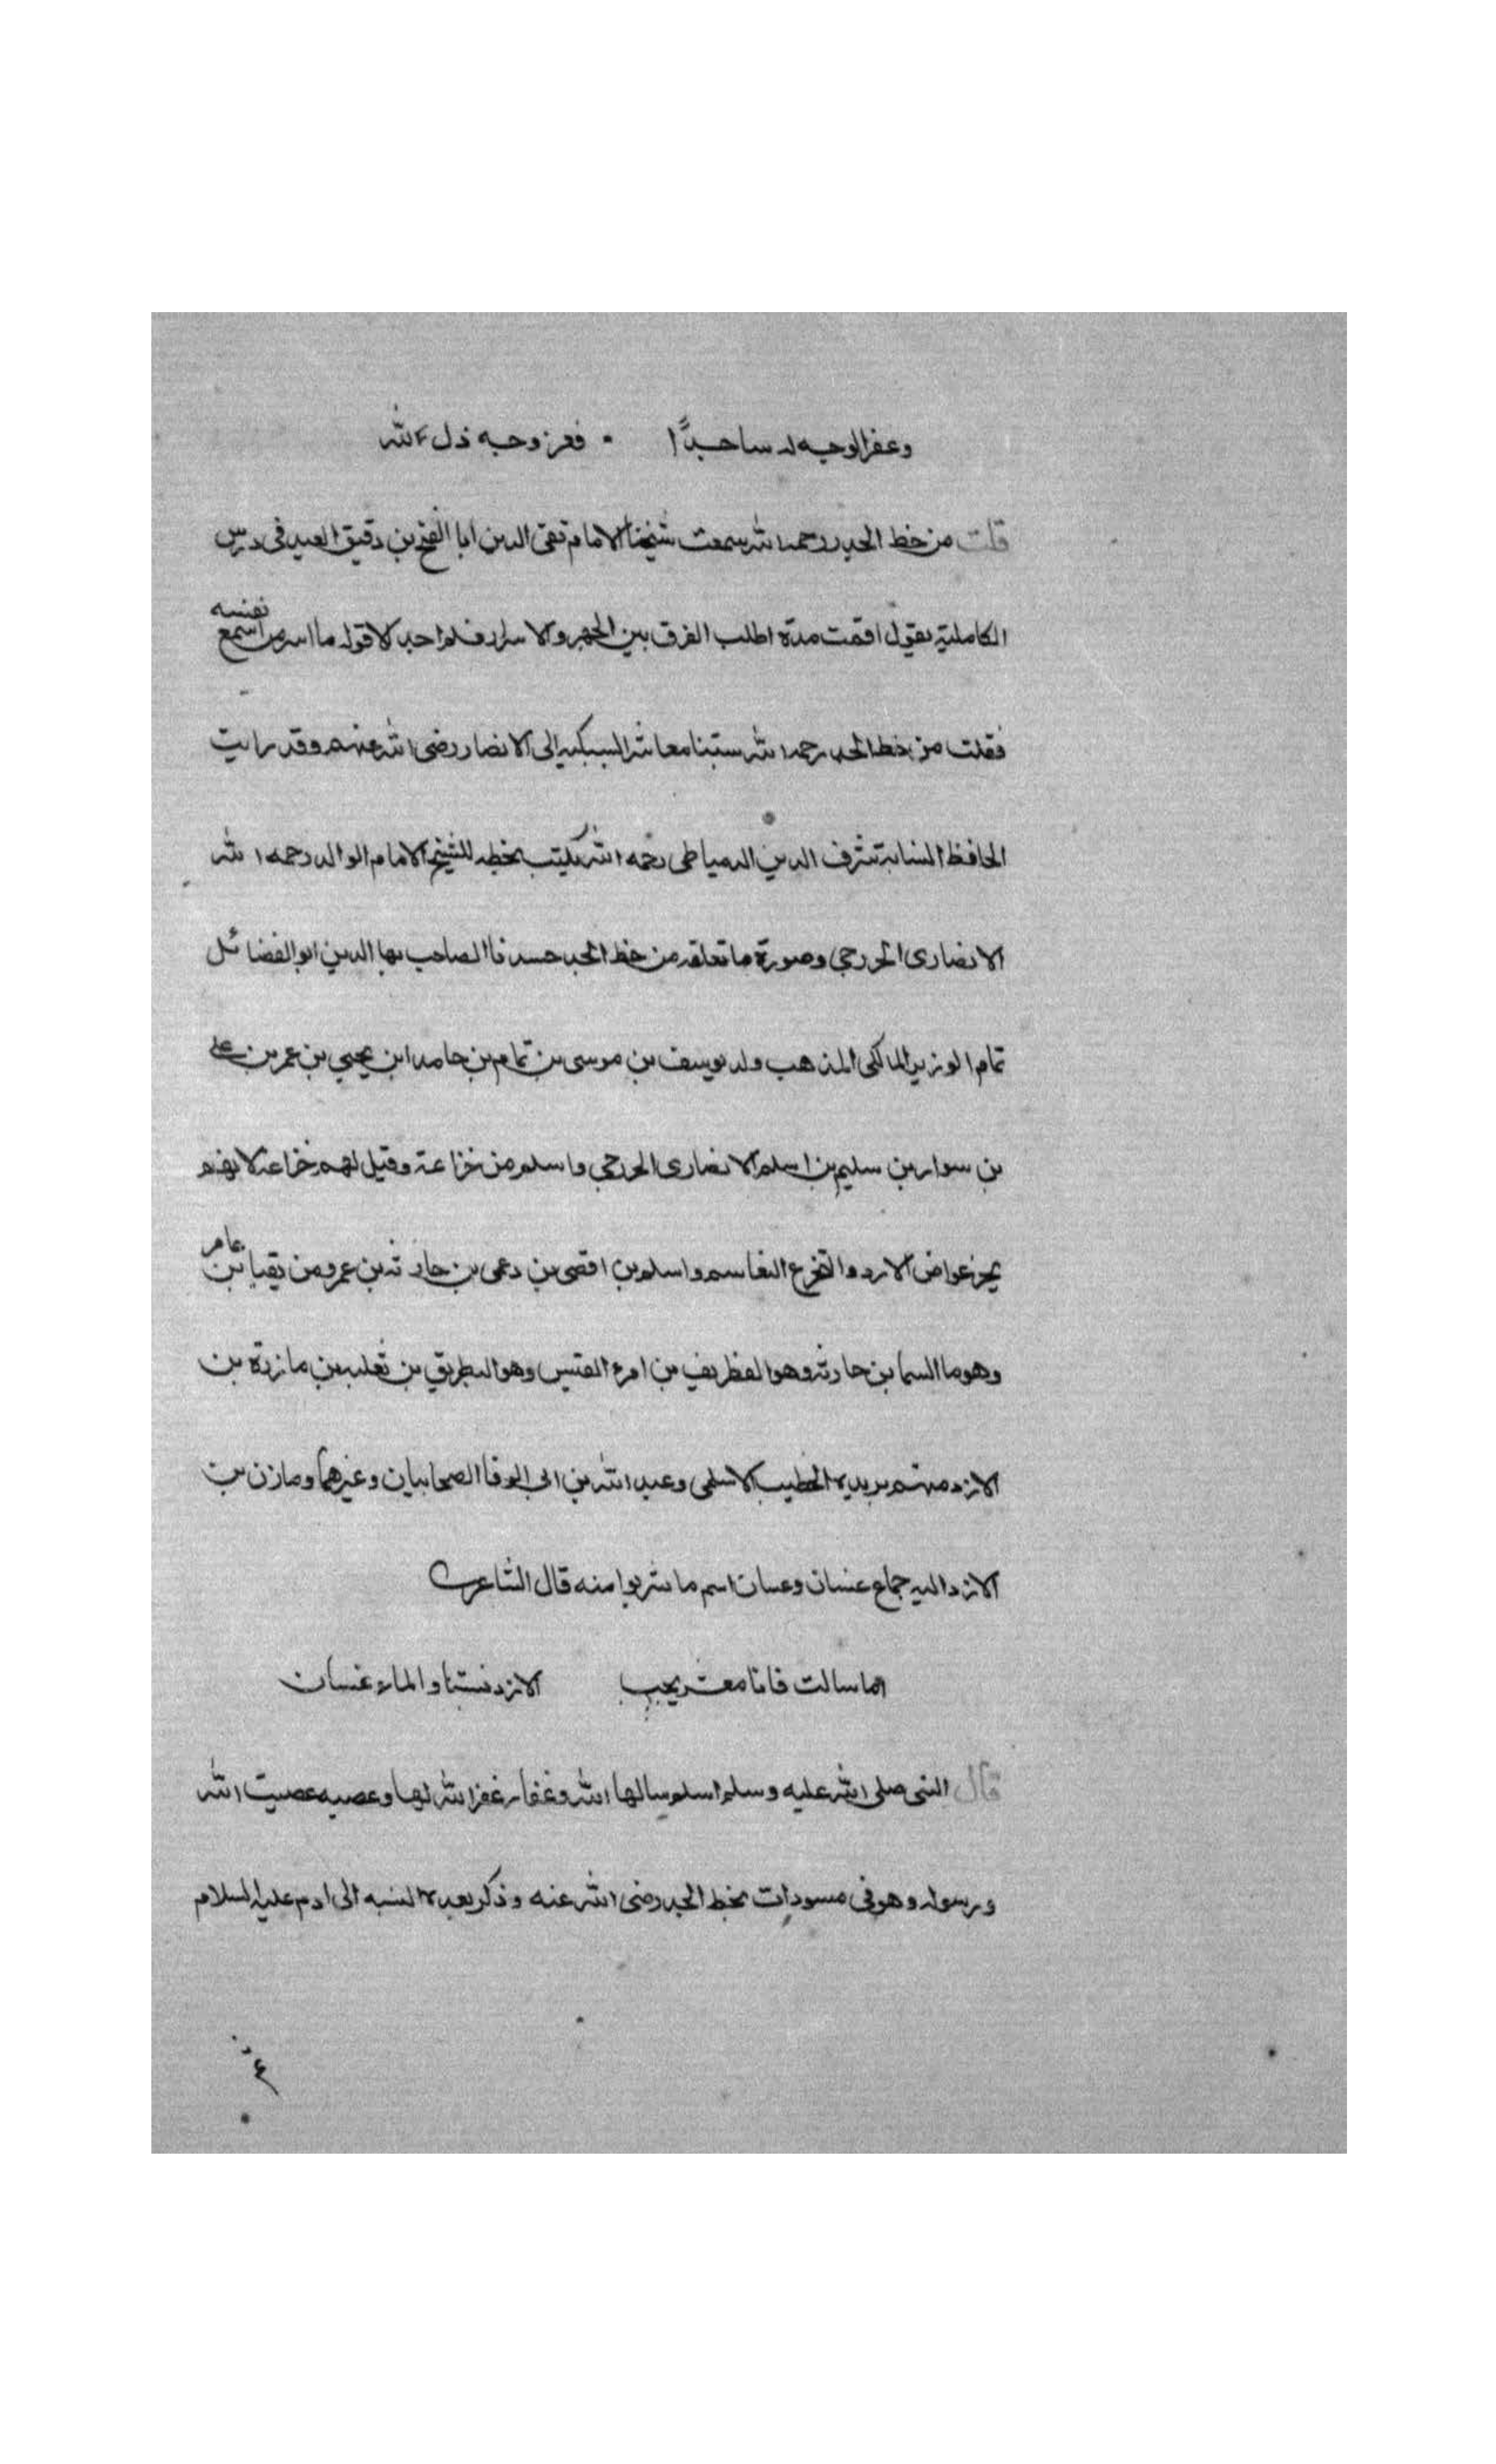 وعفر الوجه له ساجدًا • فعز وجه ذل لله
قلت من خط الجد رحمه الله سمعت شيخنا الامام تقي الدين ابا الفتح بن دقيق العيد في درس
الكاملية يقول اقمت مدة اطلب الفرق بين الجهر والاسرار فلم اجد الا قوله ما اسر من اسمع نفسه
فقلت من خط الجد رحمه الله ستبنا معاشر السبكية الى الانصار رضى الله عنهم وقد رايت
الحافظ النسابة شرف الدين الدمياطي رحمه الله يكتب بخطه للشيخ الامام الوالد رحمه الله
الانصارى الخزرجي وصورة ما نعلقه من خط الجد الصاحب بها الدين ابو الفضائل
تمام الوزير المالكي المذهب ولد يوسف بن موسى بن تمام بن حامد ابن يحيي بن عمر بن على
بن سوار بن سليم بن اسلم الانصارى الخزرجي واسلم من خزاعة وقيل لهم خزاعة لانهم
الازد والتخرع التقاسم واسلم بن افصى بن دعمى بن حارثة بن عمرو من يقيا بن عامر
وهو ما السما بن حارثة وهو الغطريف بن امرء القيس وهو البطريق بن ثعلبه بن مازن بن
الازد منهم بريدة الخطيب الاسلمى وعبد الله بن ابي الوفا الصحابيان وغيرهما ومازن بن
الازد اليه جماع غسان وغسان اسم ما شربوا منه قال الشاعر
اما سالت فانا معشر يجب الازد نسبتنا والماء غسان
قال النبي صلى الله عليه وسلم اسلم سالمها الله وغفار غفر الله لها وعصيه عصيت الله
ورسوله وهو في مسودات بخط الجد رضى الله عنه وذكر بعد النسبه الى ادم عليه السلام